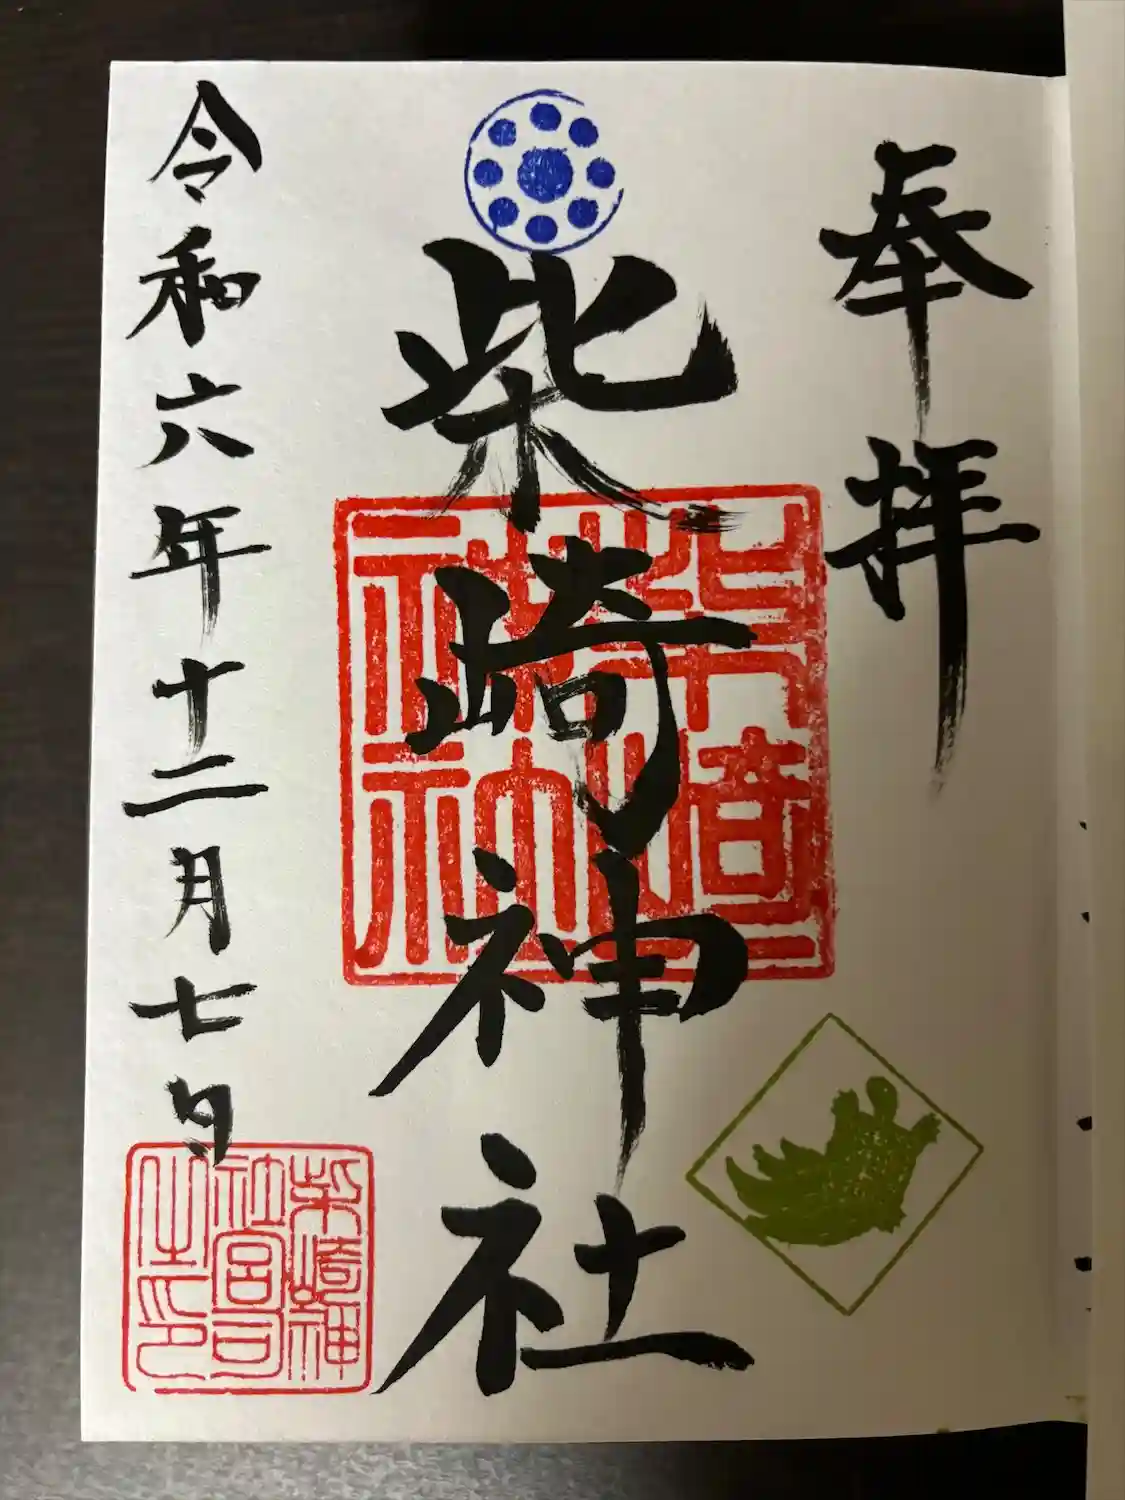 奉拝
柴崎神社
柴崎神社
令和六年十二月七日
柴崎神
社宮司
之印